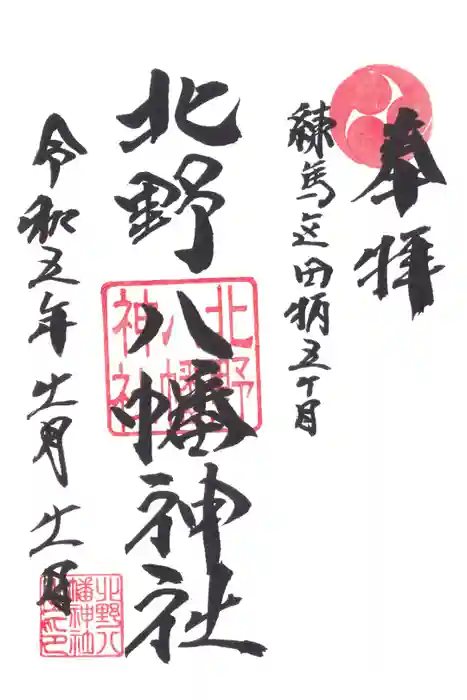 奉拝
練馬区田柄五丁目
北野八幡神社
北野
八幡
神社
令和五年十一月十一日
北野八
幡神社